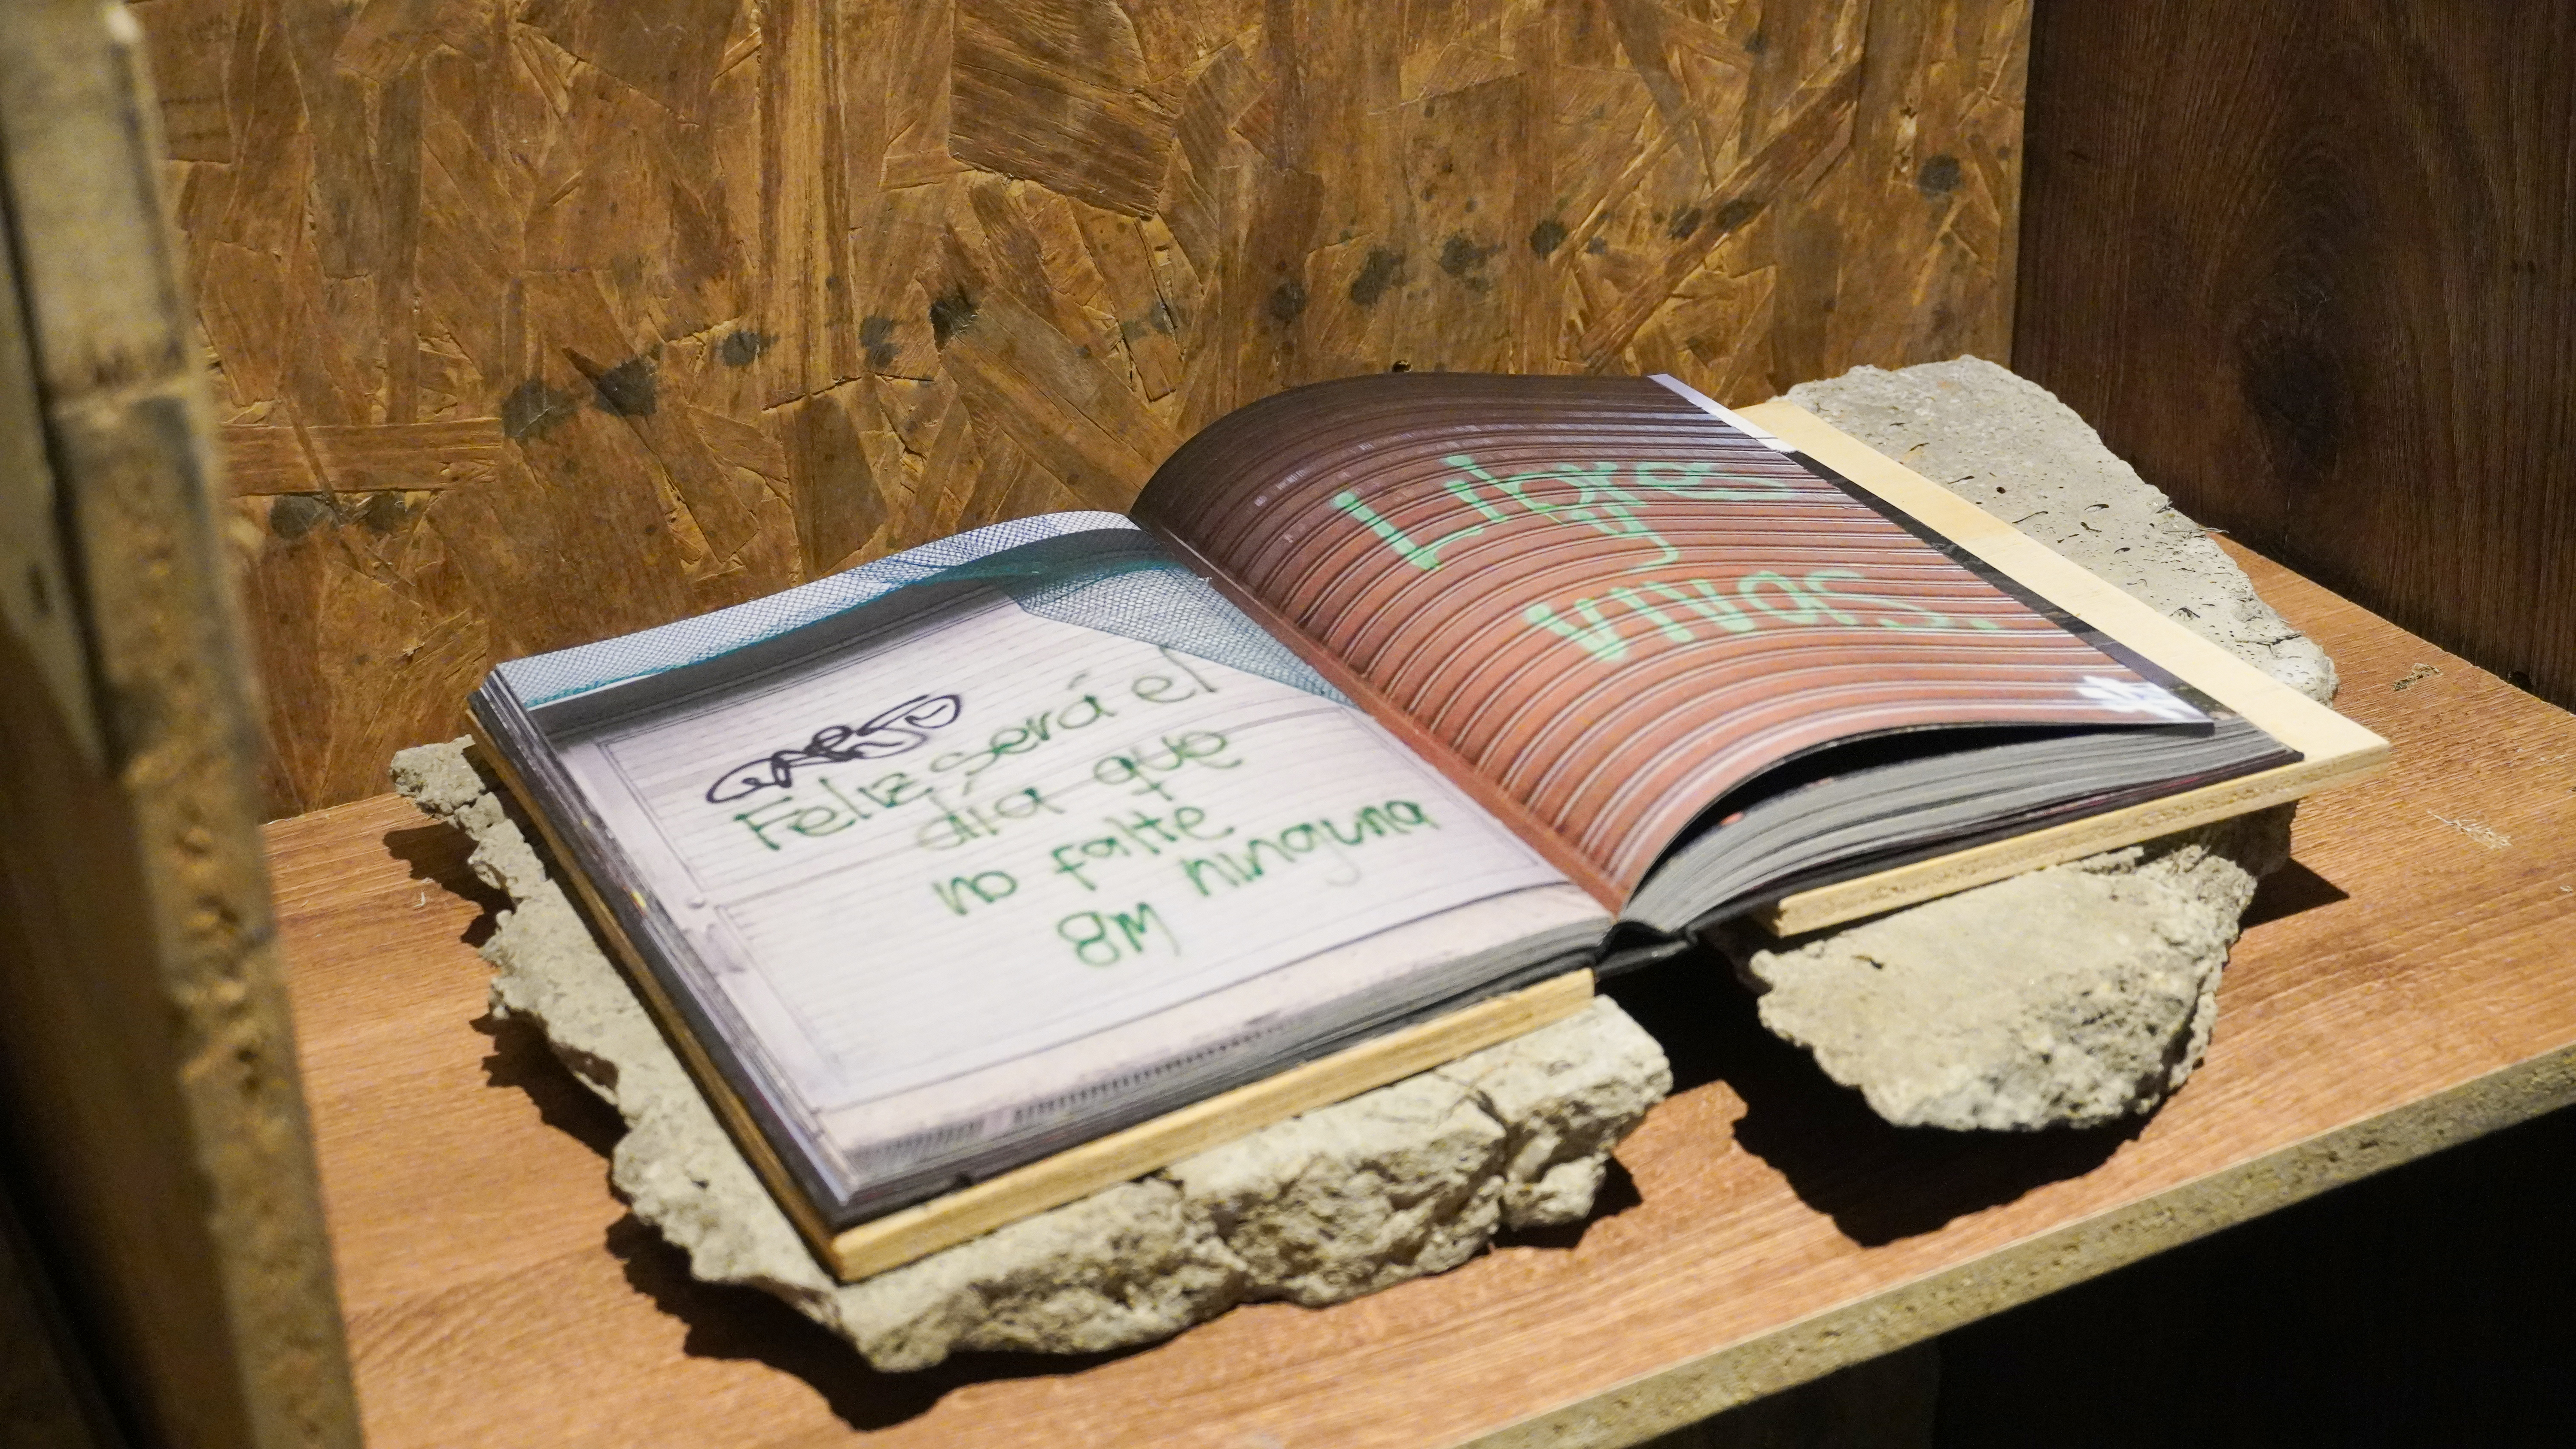 Feliz será el
día que
no falte
ninguna
8M
Libres
y
vivas.